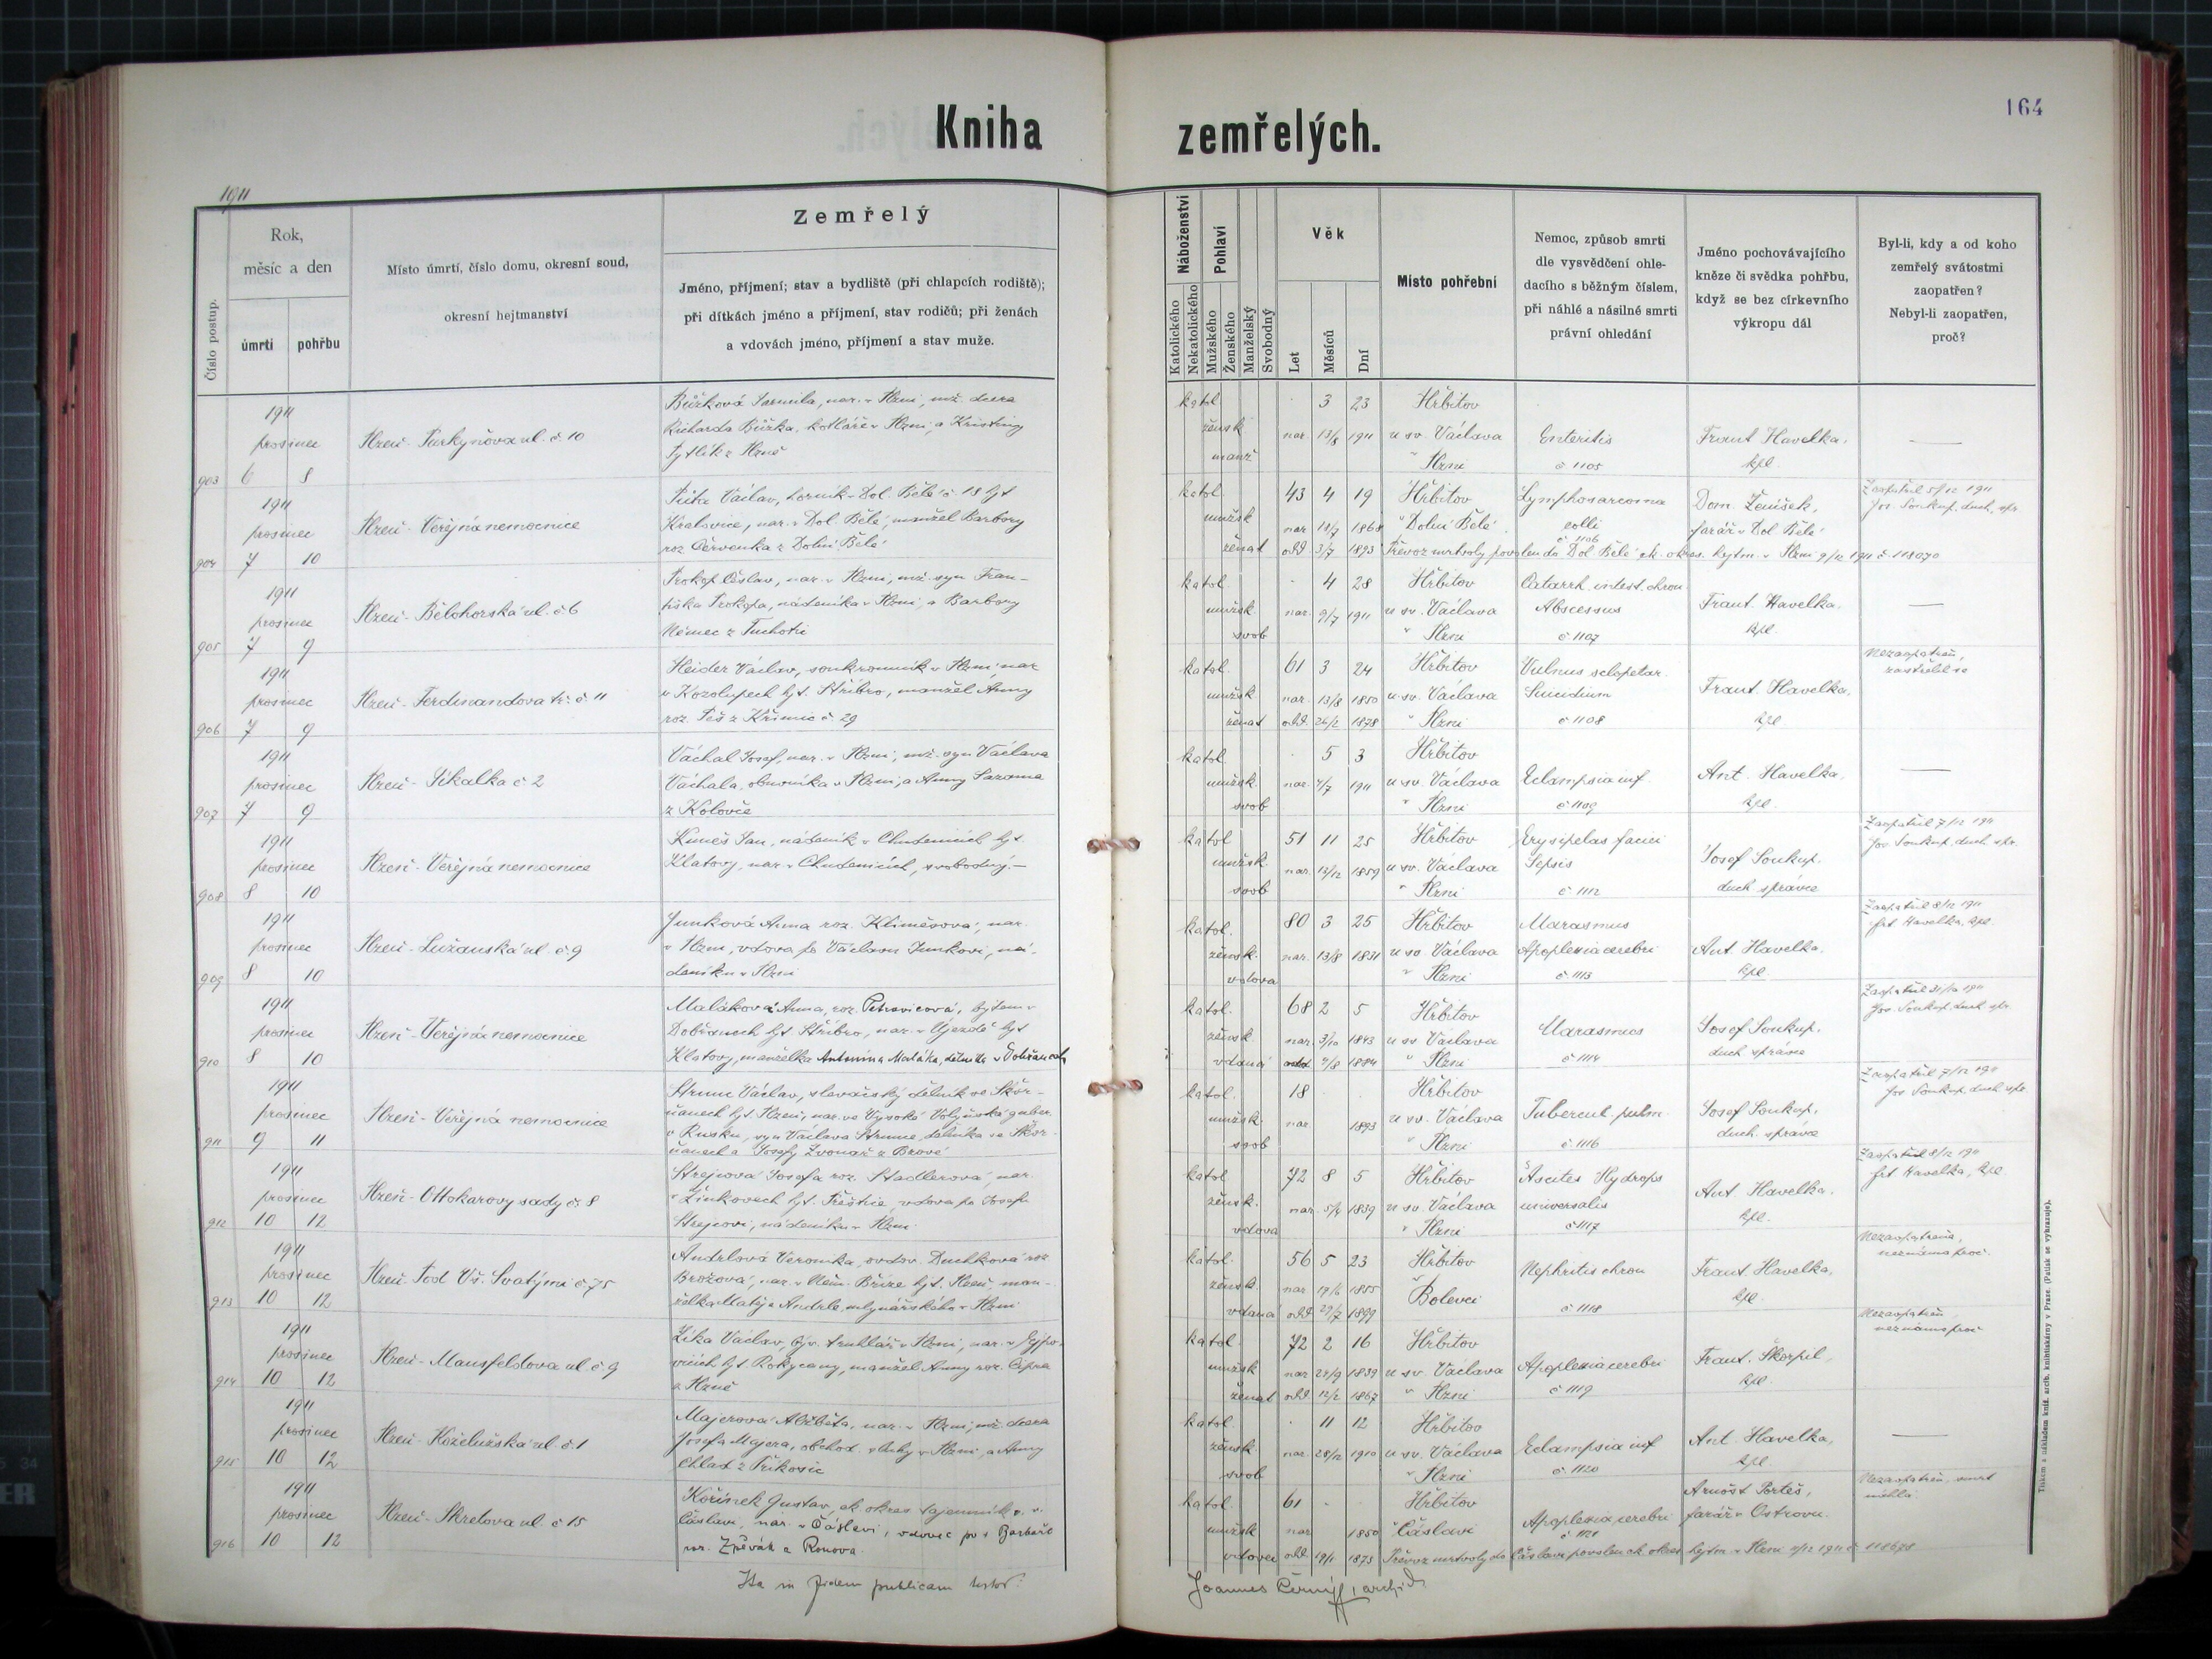 164
Kniha zemřelých.
1911
Číslo postup.
Rok,
měsíc a den
úmrtí
pohřbu
Místo úmrtí, číslo domu, okresní soud,
okresní hejtmanství
Zemřelý
Jméno, příjmení; stav a bydliště (při chlapcích rodiště);
při dítkách jméno a příjmení, stav rodičů; při ženách
a vdovách jméno, příjmení a stav muže.
Náboženství
Katolického
Nekatolického
Pohlaví
Mužského
Ženského
Manželský
Svobodný
Věk
Let
Měsíců
Dní
Místo pohřební
Nemoc, způsob smrti
dle vysvědčení ohle-
dacího s běžným číslem,
při náhlé a násilné smrti
právní ohledání
Jméno pochovávajícího
kněze či svědka pohřbu,
když se bez církevního
výkropu dál
Byl-li, kdy a od koho
zemřelý svátostmi
zaopatřen?
Nebyl-li zaopatřen,
proč?
903
1911
prosinec
6 8
Plzeň - Purkyňova ul. č. 10
Bůžková Jarmila, nar. v Plzni, mž. dcera
Richarda Bůžka, kotláře v Plzni, a Kristiny
Pytlík z Plzně
katol
žensk
manž
3 23
nar. 13/8 1911
Hřbitov
u sv. Václava
v Plzni
Enteritis
č 1105
Frant Havelka,
kpl.
904
1911
prosinec
7 10
Plzeň - Veřejná nemocnice
Václav, horník v Dol. Bělé č. 18 hjt
Kralovice, nar. v Dol. Bělé, manžel Barbory
roz. Červenka z Dolní Bělé
katol.
mužsk
ženat
43 4 19
nar 18/7 1868
odd. 3/7 1893
Hřbitov
v Dolní Bělé
Lymphosarcoma
colli
č 1106
Dom. Ženíšek,
farář v Dol Bělé
Zaopatřil 5/12 1911
Jos. Soukup, duch. spr.
Převoz mrtvoly povolen do Dol Bělé ck. okres. hejtm. v Plzni 9/12 1911 č 118070
905
1911
prosinec
7 9
Plzeň - Bělohorská ul. č 6
Prokop Česlav, nar. v Plzni, mž. syn Fran-
tiška Prokopa, nádeníka v Plzni, a Barbory
Němec z Tuchoři
katol.
mužsk.
svob
4 28
nar. 9/7 1911
Hřbitov
u sv. Václava
v Plzni
Catarrh. intest. chron.
Abscessus
č 1107
Frant. Havelka,
kpl.
906
1911
prosinec
7 9
Plzeň - Ferdinandova tř. č 11
Heider Václav, soukromník v Plzni, nar
v Kozolupech hjt. Stříbro, manžel Anny
roz. Peš z Křimic č. 29
katol.
mužsk
ženat
61 3 24
nar. 13/8 1850
odd. 26/2 1878
Hřbitov
u sv. Václava
v Plzni
Vulnus sclopetar.
Suicidium
č 1108
Frant. Havelka,
kpl
Nezaopatřen,
zastřelil se
907
1911
prosinec
7 9
Plzeň - Sikalka č 2
Váchal Josef, nar. v Plzni, mž. syn Václava
Váchala, obuvníka v Plzni, a Anny Sazama
z Koloveče
katol.
mužsk
svob
5 3
nar. 4/7 1911
Hřbitov
u sv. Václava
v Plzni
Eclampsia inf
č 1109
Ant. Havelka,
kpl.
908
1911
prosinec
8 10
Plzeň - Veřejná nemocnice
Kuneš Jan, nádeník v Chudenicích hjt.
Klatovy, nar. v Chudenicích, svobodný. -
katol
mužsk.
svob
51 11 25
nar. 13/12 1859
Hřbitov
u sv. Václava
v Plzni
Erysipelas faciei
Sepsis
č. 1112
Josef Soukup,
duch. správce
Zaopatřil 7/12 1911
Jos. Soukup, duch. spr.
909
1911
prosinec
8 10
Plzeň - Lužanská ul. č. 9
Junková Anna roz. Klimešová, nar.
v Plzni, vdova po Václavu Junkovi, ná-
deníku v Plzni
katol.
žensk.
vdova
80 3 25
nar. 13/8 1831
Hřbitov
u sv Václava
v Plzni
Marasmus
Apoplexia cerebri
č 1113
Ant. Havelka,
kpl.
Zaopatřil 8/12 1911
frt Havelka, kpl.
910
1911
prosinec
8 10
Plzeň - Veřejná nemocnice
Maláková Anna, roz. Petrovicová, bytem v
Dobřanech hjt Stříbro, nar. v Újezdě hjt
Klatovy, manželka Antonína Maláka, dělníka v Dobřanech
katol.
žensk
vdaná
68 2 5
nar. 3/10 1843
odd 9/8 1884
Hřbitov
u sv Václava
v Plzni
Marasmus
č 1114
Josef Soukup,
duch správce
Zaopatřil 31/10 1911
Jos. Soukup, duch. spr.
911
1911
prosinec
9 11
Plzeň - Veřejná nemocnice
Strunc Václav, slevačský dělník ve Skvr-
ňanech hjt. Plzeň, nar. ve Vysoké Volyňská guber.
v Rusku, syn Václava Strunce, dělníka ve Skvr-
ňanech a Josefy Zvonař z Brové
katol.
mužsk.
svob
18
nar 1893
Hřbitov
u sv. Václava
v Plzni
Tubercul. pulm.
č. 1116
Josef Soukup,
duch. správce
Zaopatřil 7/12 1911
Jos Soukup, duch. spr.
912
1911
prosinec
10 12
Plzeň - Ottokarovy sady č. 8
Strejcová Josefa roz. Stadlerová, nar.
v Žinkovech hjt. Přeštice, vdova po Josefu
Strejcovi, nádeníku v Plzni
katol
žensk.
vdova
72 8 5
nar. 5/4 1839
Hřbitov
u sv. Václava
v Plzni
Ascites Hydrops
universalis
č 1117
Ant. Havelka,
kpl.
Zaopatřil 8/12 1911
frt Havelka, kpl.
913
1911
prosinec
10 12
Plzeň Pod Vš. Svatými č. 75
Andrlová Veronika, ovdov. Duchková roz
Brožová, nar. v Něm. Bříze hjt. Plzeň man-
želka Matěje Andrle, mlynářského v Plzni
katol.
žensk.
vdaná
56 5 23
nar 19/6 1855
odd 29/7 1899
Hřbitov
v Bolevci
Nephritis chron
č 1118
Frant. Havelka,
kpl.
Nezaopatřena,
neznámo proč.
914
1911
prosinec
10 12
Plzeň - Mansfeldova ul. č 9
Zíka Václav, býv. truhlář v Plzni, nar. v Ejpo-
vicích hjt. Rokycany, manžel Anny roz. Cipra
z Plzně
katol.
mužsk
ženat
72 2 16
nar 24/9 1839
odd. 12/2 1867
Hřbitov
u sv. Václava
v Plzni
Apoplexia cerebri
č 1119
Frant. Škorpil,
kpl.
Nezaopatřen,
neznámo proč
915
1911
prosinec
10 12
Plzeň - Koželužská ul. č. 1
Majerová Alžběta, nar. v Plzni, mž dcera
Josefa Majera, obchod. v Plzni, a Anny
Chlad z Příkosic
katol.
žensk.
svob
11 12
nar. 28/12 1910
Hřbitov
u sv. Václava
v Plzni
Eclampsia inf
č. 1120
Ant. Havelka,
kpl.
916
1911
prosinec
10 12
Plzeň - Skretova ul. č 15
Kořínek Gustav, ck okres tajemník v. v.
Čáslavi, nar. v Čáslavi, vdovec po † Barboře
roz. Zpěvák z Ronova
katol.
mužsk
vdovec
61
nar 1850
odd. 19/1 1875
Hřbitov
v Čáslavi
Apoplexia cerebri
č 1121
Arnošt Porteš,
farář v Ostrovu.
Nezaopatřen, smrt
náhlá.
Převoz mrtvoly do Čáslavi povolen ck okres hejtm v Plzni 11/12 1911 č 118678
Ita in fidem publicam testor:
Joannes Černý, archid
Tiskem a nákladem kníž. arcib. knihtiskárny v Praze. (Patisk se vyhrazuje).